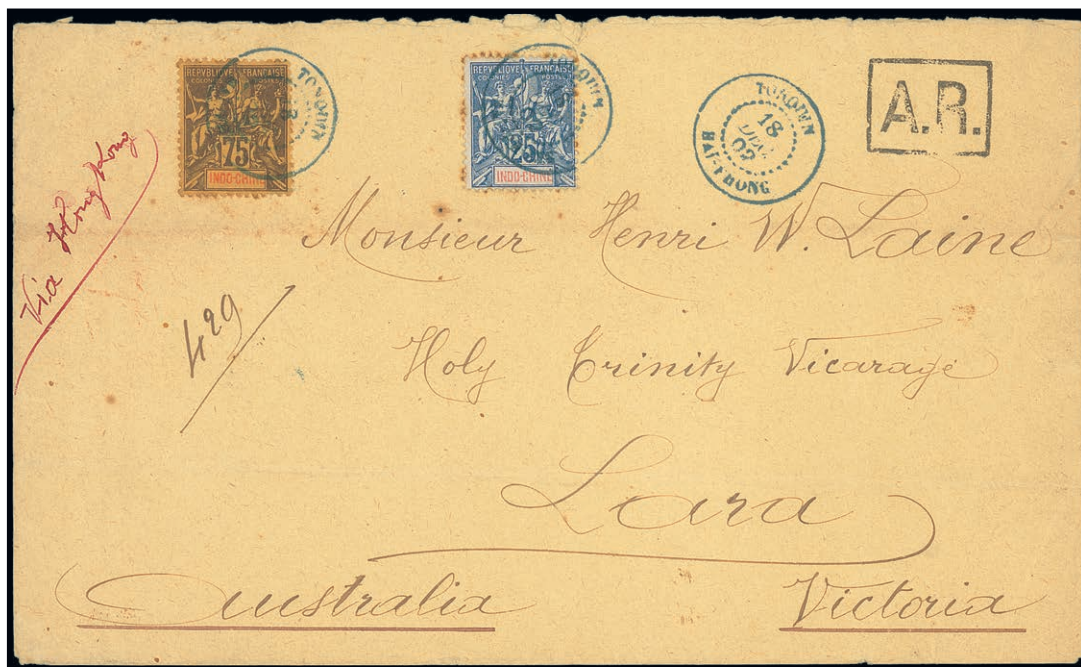 REPVBLIQVE FRANÇAISE
COLONIES POSTES
75
INDO-CHINE
TONQUIN
REPVBLIQVE FRANÇAISE
COLONIES POSTES
INDO-CHINE
TONQUIN
TONQUIN
18
DEC
02
HAI-PHONG
A.R.
Via Hong Kong
Monsieur Henri W. Laine
429
Holy Trinity Vicarage
Lara
Australia Victoria